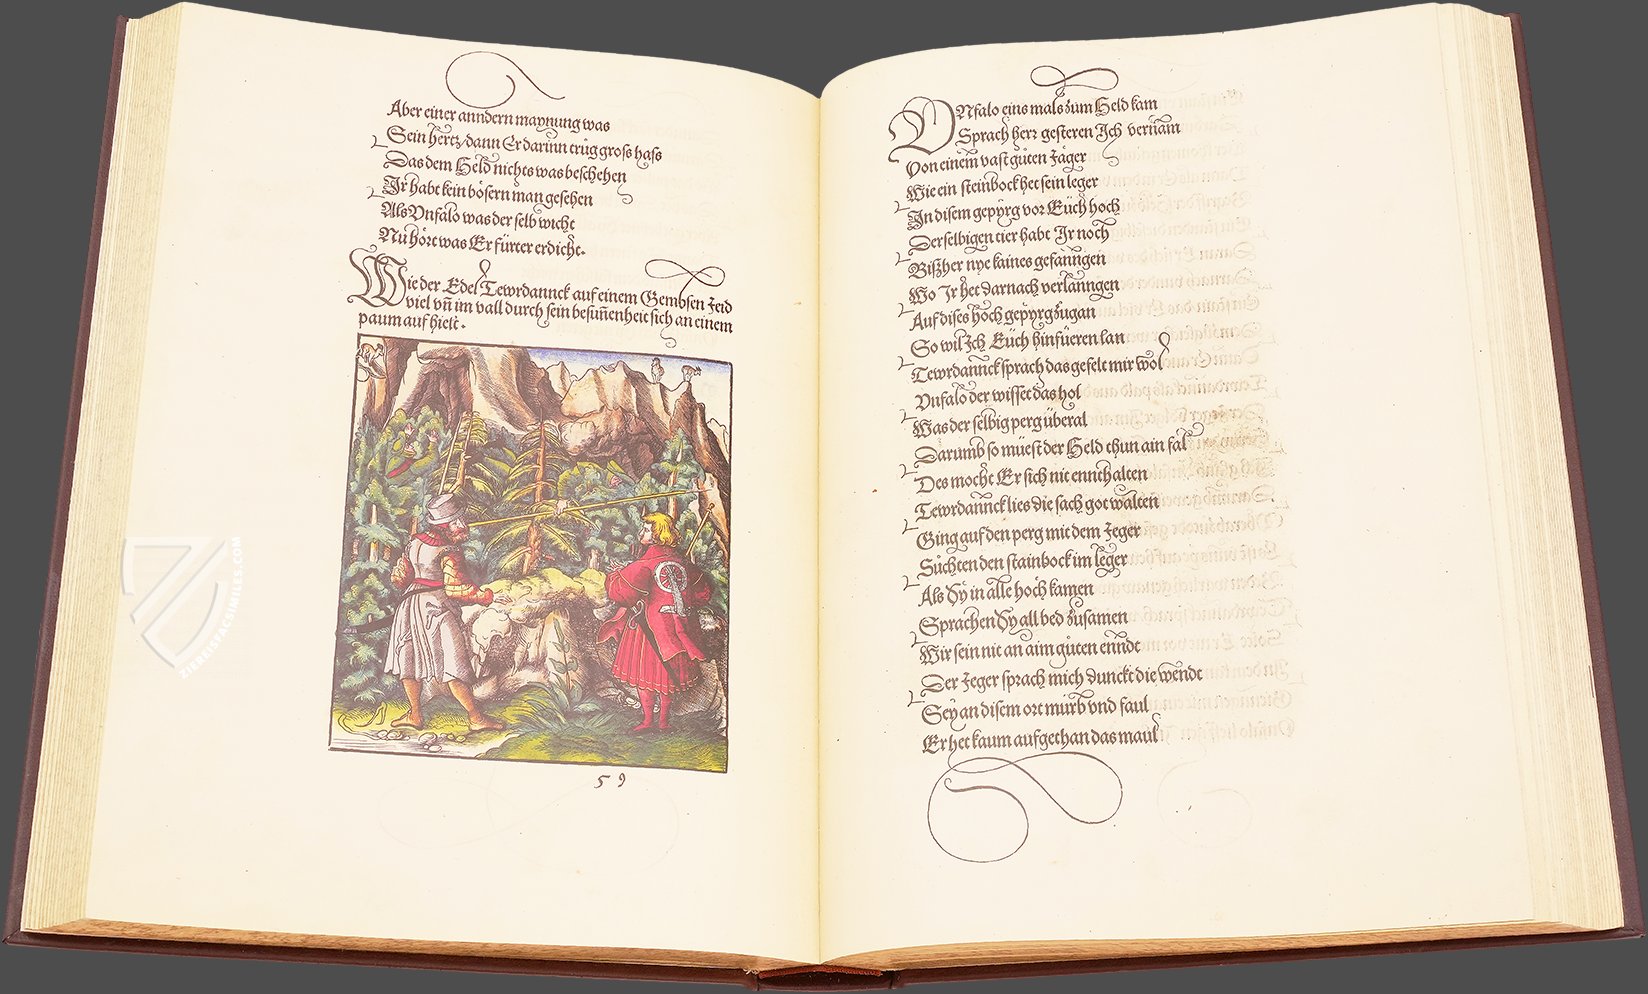 Aber einer anndern maynung was
Sein hertz/dann Er darinn trůg gross hass
Das dem Held nichts was beschehen
Ir habt kein bösern man gesehen
Als Vnfalo was der selb wicht
Nů hört was Er fürter erdicht.
Wie der Edel Tewrdannck auf einem Gembsen Jeid
viel vñ im vall durch sein besuñenheit sich an einem
paum auf hielt.
59
VNfalo eins mals zům Held kam
Sprach herr gesteren Ich vernam
Von einem vast gůten Jäger
Wie ein steinbock het sein leger
In disem gepyrg vor Eüch hoch
Derselbigen tier habt Ir noch
Biszher nye kaines gefanngen
Wo Ir het darnach verlanngen
Auf dises hoch gepyrg zugan
So wil Ich Eüch hinfüeren lan
Tewrdannck sprach das gefelt mir wol
Vnfalo der wisset das hol
Was der selbig perg überal
Darumb so müest der Held thun ain fal
Des mocht Er sich nit ennthalten
Tewrdannck lies die sach got walten
Ging auf den perg mit dem Jeger
Sůchten den stainbock im leger
Als Sy in alle hoch kamen
Sprachen Sy all bed zusamen
Wir sein nit an aim gůten ennde
Der Jeger sprach mich dunckt die wende
Sey an disem ort mürb vnd faul
Er het kaum aufgethan das maul
ZIEREISFACSIMILES.COM